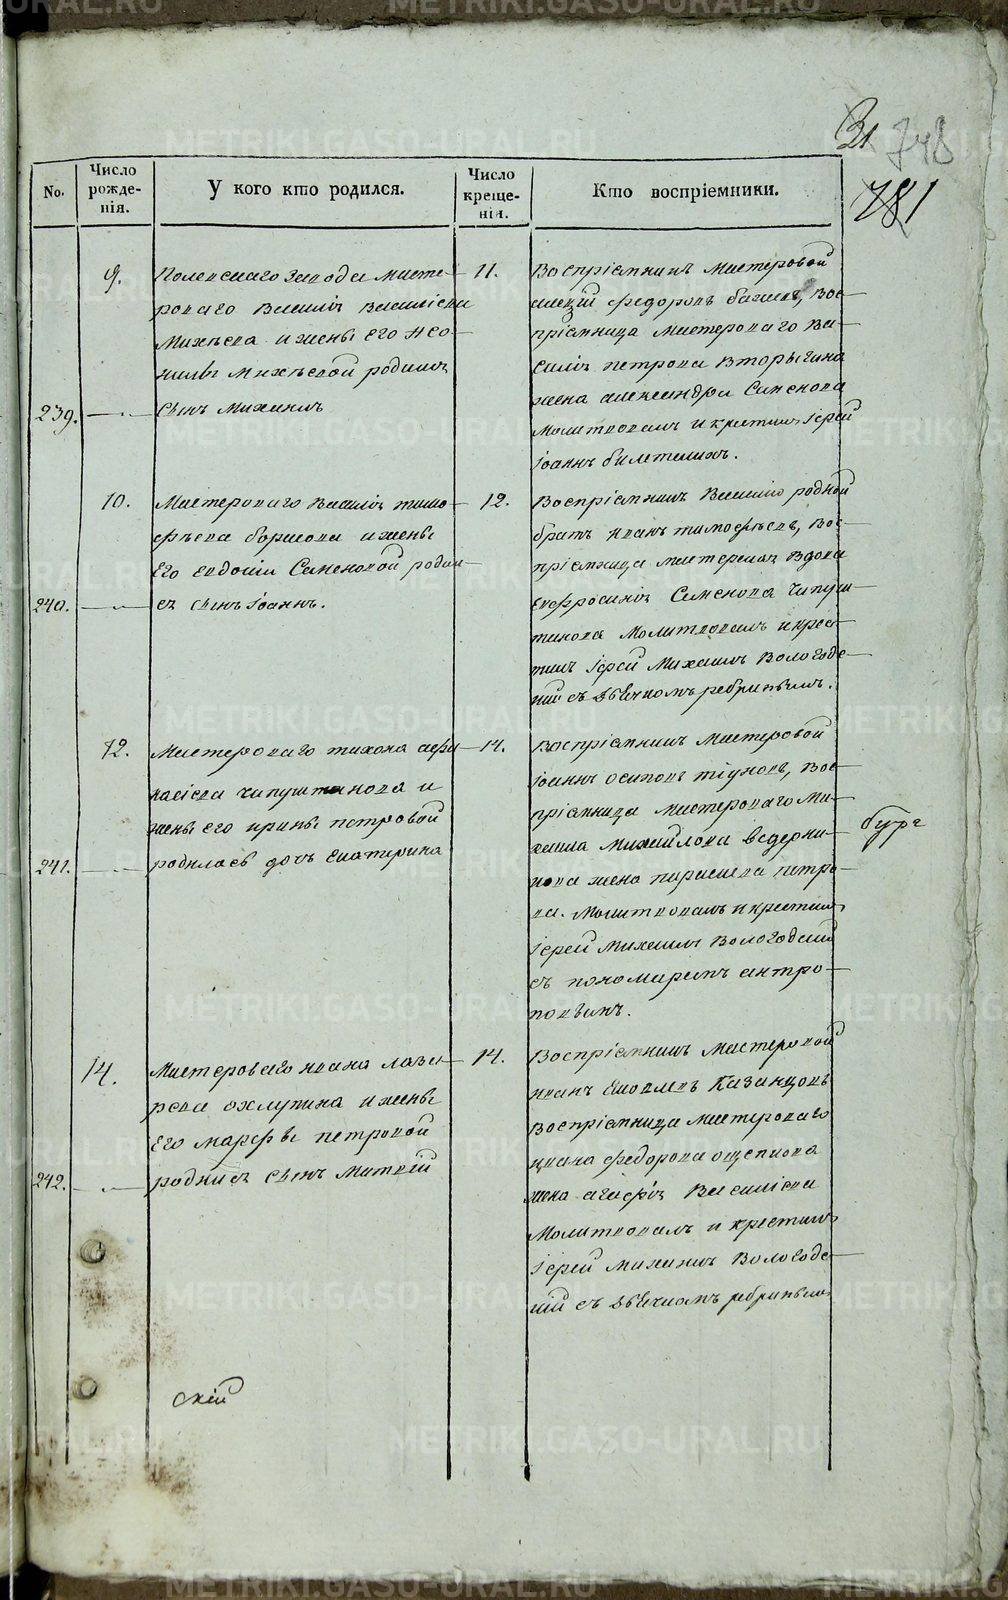 METRIKI.GASO-URAL.RU
31 748
781
No.
Число рожде-нія.
У кого кто родился.
Число креще-нія.
Кто воспріемники.
9.
Полевскаго завода масте-
роваго Василія Васильева
Михѣева и жены его Нео-
нилы Михѣевой родился
239.
сынъ Михаилъ
11.
Воспріемникъ мастеровой
Федоровъ
воспріемница мастероваго Ва-
силія Петрова Вторыгина
жена Александра Семенова
Молитвовалъ и крестилъ Іерей
Іоаннъ
10.
Мастероваго Василія Тимо-
фѣева Борисова и жены
Его Евдокіи Семеновой родил-
240.
ся сынъ Іоаннъ.
12.
Воспріемникъ Василію родной
братъ Иванъ Тимофѣевъ, Вос-
пріемница мастерская вдова
Евфросинія Семенова Чипуш-
танова Молитвовалъ и крес-
тилъ Іерей Михаилъ Вологод-
кій съ дьячкомъ
12.
Мастероваго Тихона Афа-
насіева Чипуштанова и
жены его Ирины Петровой
241.
родилась дочь Екатерина
14.
Воспріемникъ мастеровой
Іоаннъ Осиповъ Тіуновъ, Вос-
пріемница мастероваго Ми-
хаила Михайлова Ведерни-
кова жена Параскева Петро-
ва. Молитвовалъ и крестилъ
Іерей Михаилъ Вологодскій
съ пономаремъ Антро-
повымъ.
14.
Мастероваго Ивана Лаза-
рева Охлупина и жены
Его Марфы Петровой
242.
родился сынъ Матвій
14.
Воспріемникъ мастеровой
Иванъ Яковлевъ Казанцовъ
Воспріемница мастероваго
Ивана Федорова Ощепкова
жена Агафія Васильева
Молитвовалъ и крестилъ
Іерей Михаилъ Вологод-
кій съ дьячкомъ
скій